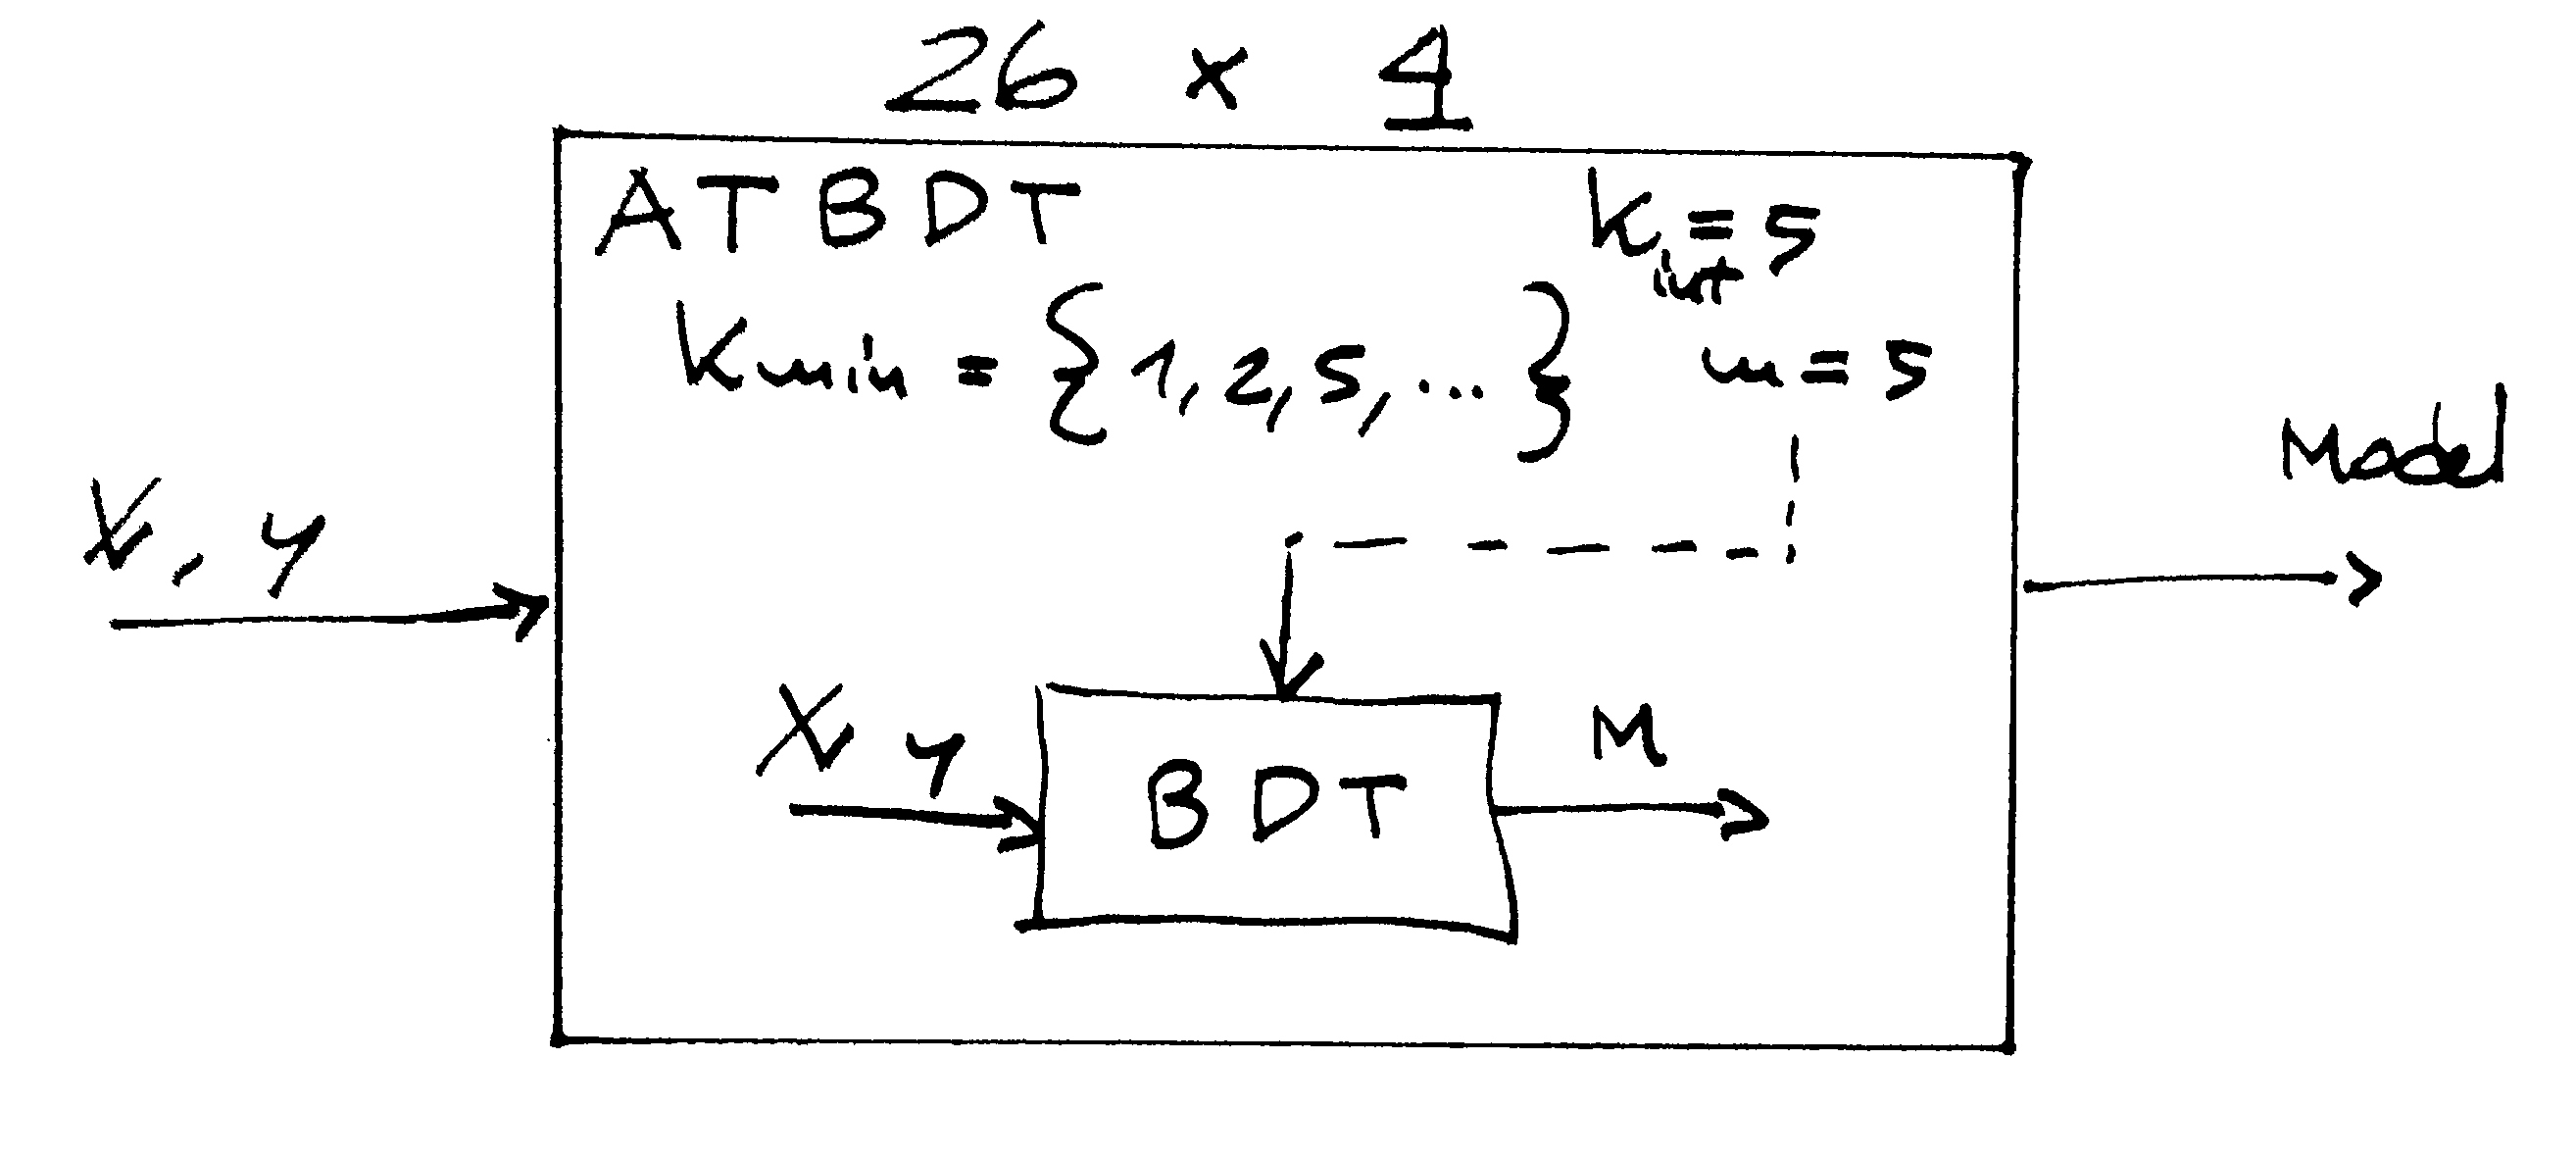 26 x 4
ATBDT
K int = 5
Kmin = {1, 2, 5, ...}
m = 5
X, y
Model
X y
M
BDT